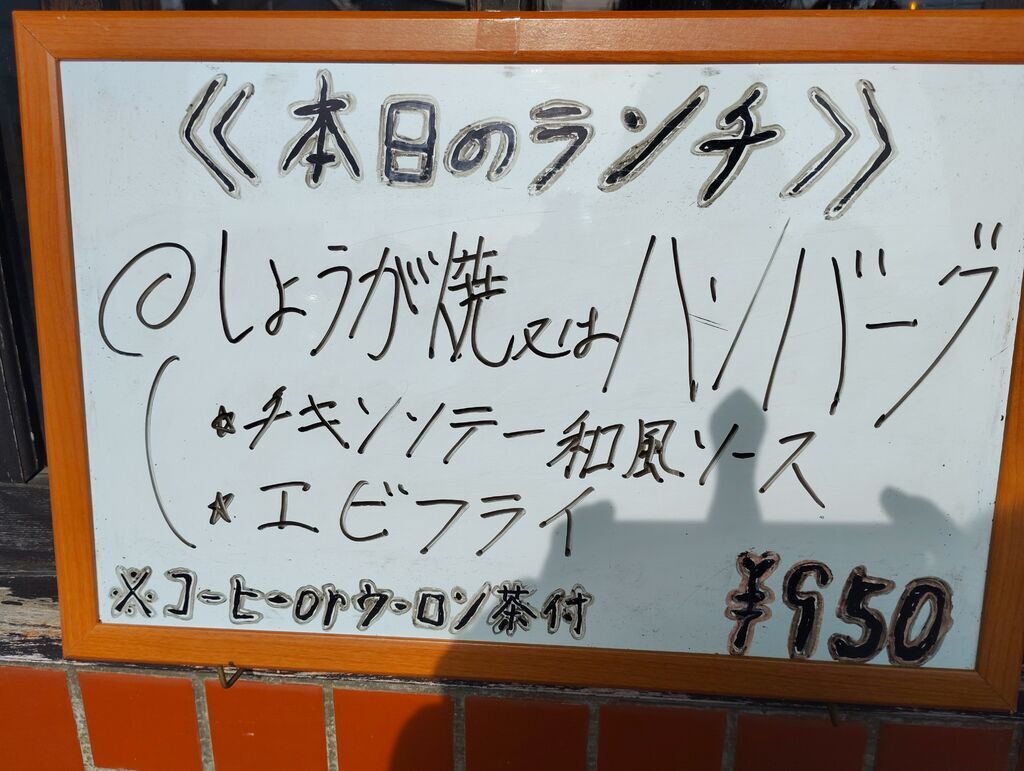 《本日のランチ》
◎しょうが焼又はハンバーグ
★チキンソテー和風ソース
★エビフライ
※コーヒーorウーロン茶付
¥950